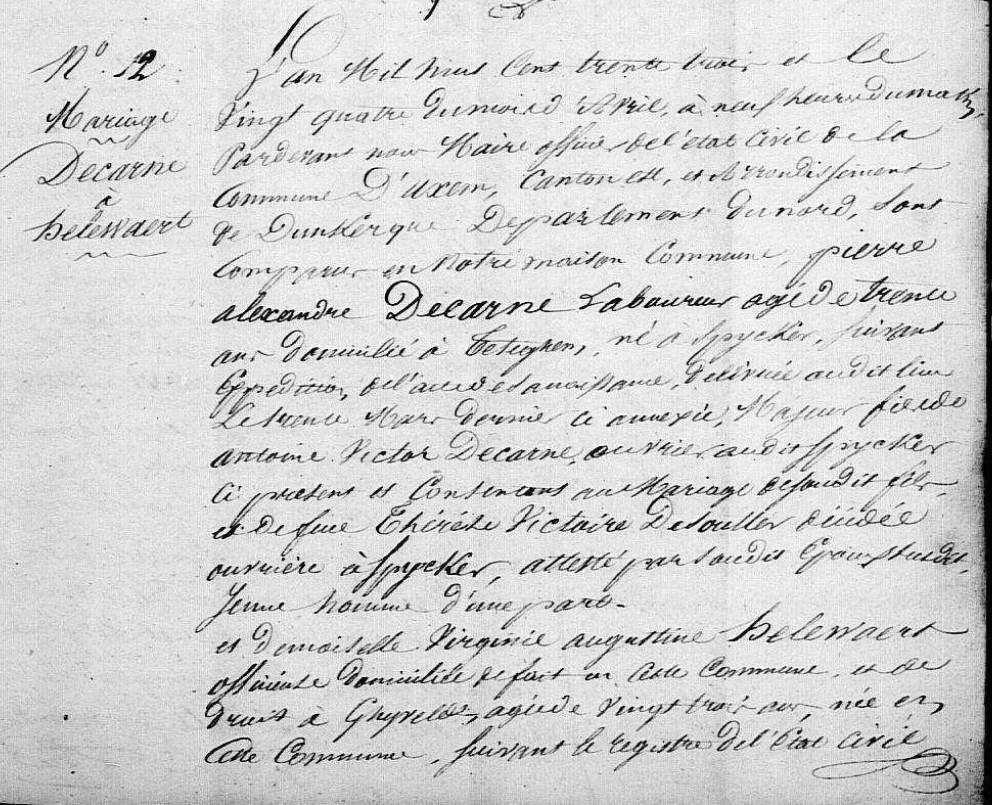 N° 12
Mariage
Decarne
à
helewaert
L'an Mil huit Cent trente trois et le
Vingt quatre du mois d'Avril, à neuf heures du matin,
Pardevant nous Maire officier de l'état Civil de la
Commune D'Uxem, Canton est, et Arrondissement
de Dunkerque Departement du nord, sont
Comparus en Notre maison Commune, pierre
alexandre Decarne Laboureur agé de trente
ans domicilié à Teteghem, né à Spycker, suivant
Expedition, de l'acte de sa naissance, délivrée audit lieu
Le trente Mars dernier ci annexée, Majeur fils de
antoine Victor Decarne, ouvrier audit Spycker
Ci present et Consentant au Mariage de son dit fils,
et de feue Thérèse Victoire Desoutter décédée
ouvrière à Spycker, attesté par son dit Epoux susdit,
Jeune homme d'une part.
et demoiselle Virginie augustine helewaert
domiciliée de fait en Cette Commune, et de
droit à Ghyvelde, agée de Vingt trois ans, née en
Cette Commune, suivant le registre de l'état Civil